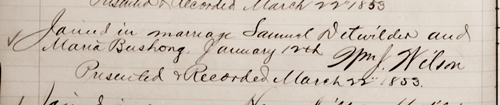 Presented & Recorded March 22nd 1853
Joined in marriage Samuel Detwilder and
Maria Bushong. January 12th
Wm J. Wilson
Presented & Recorded March 22nd 1853.